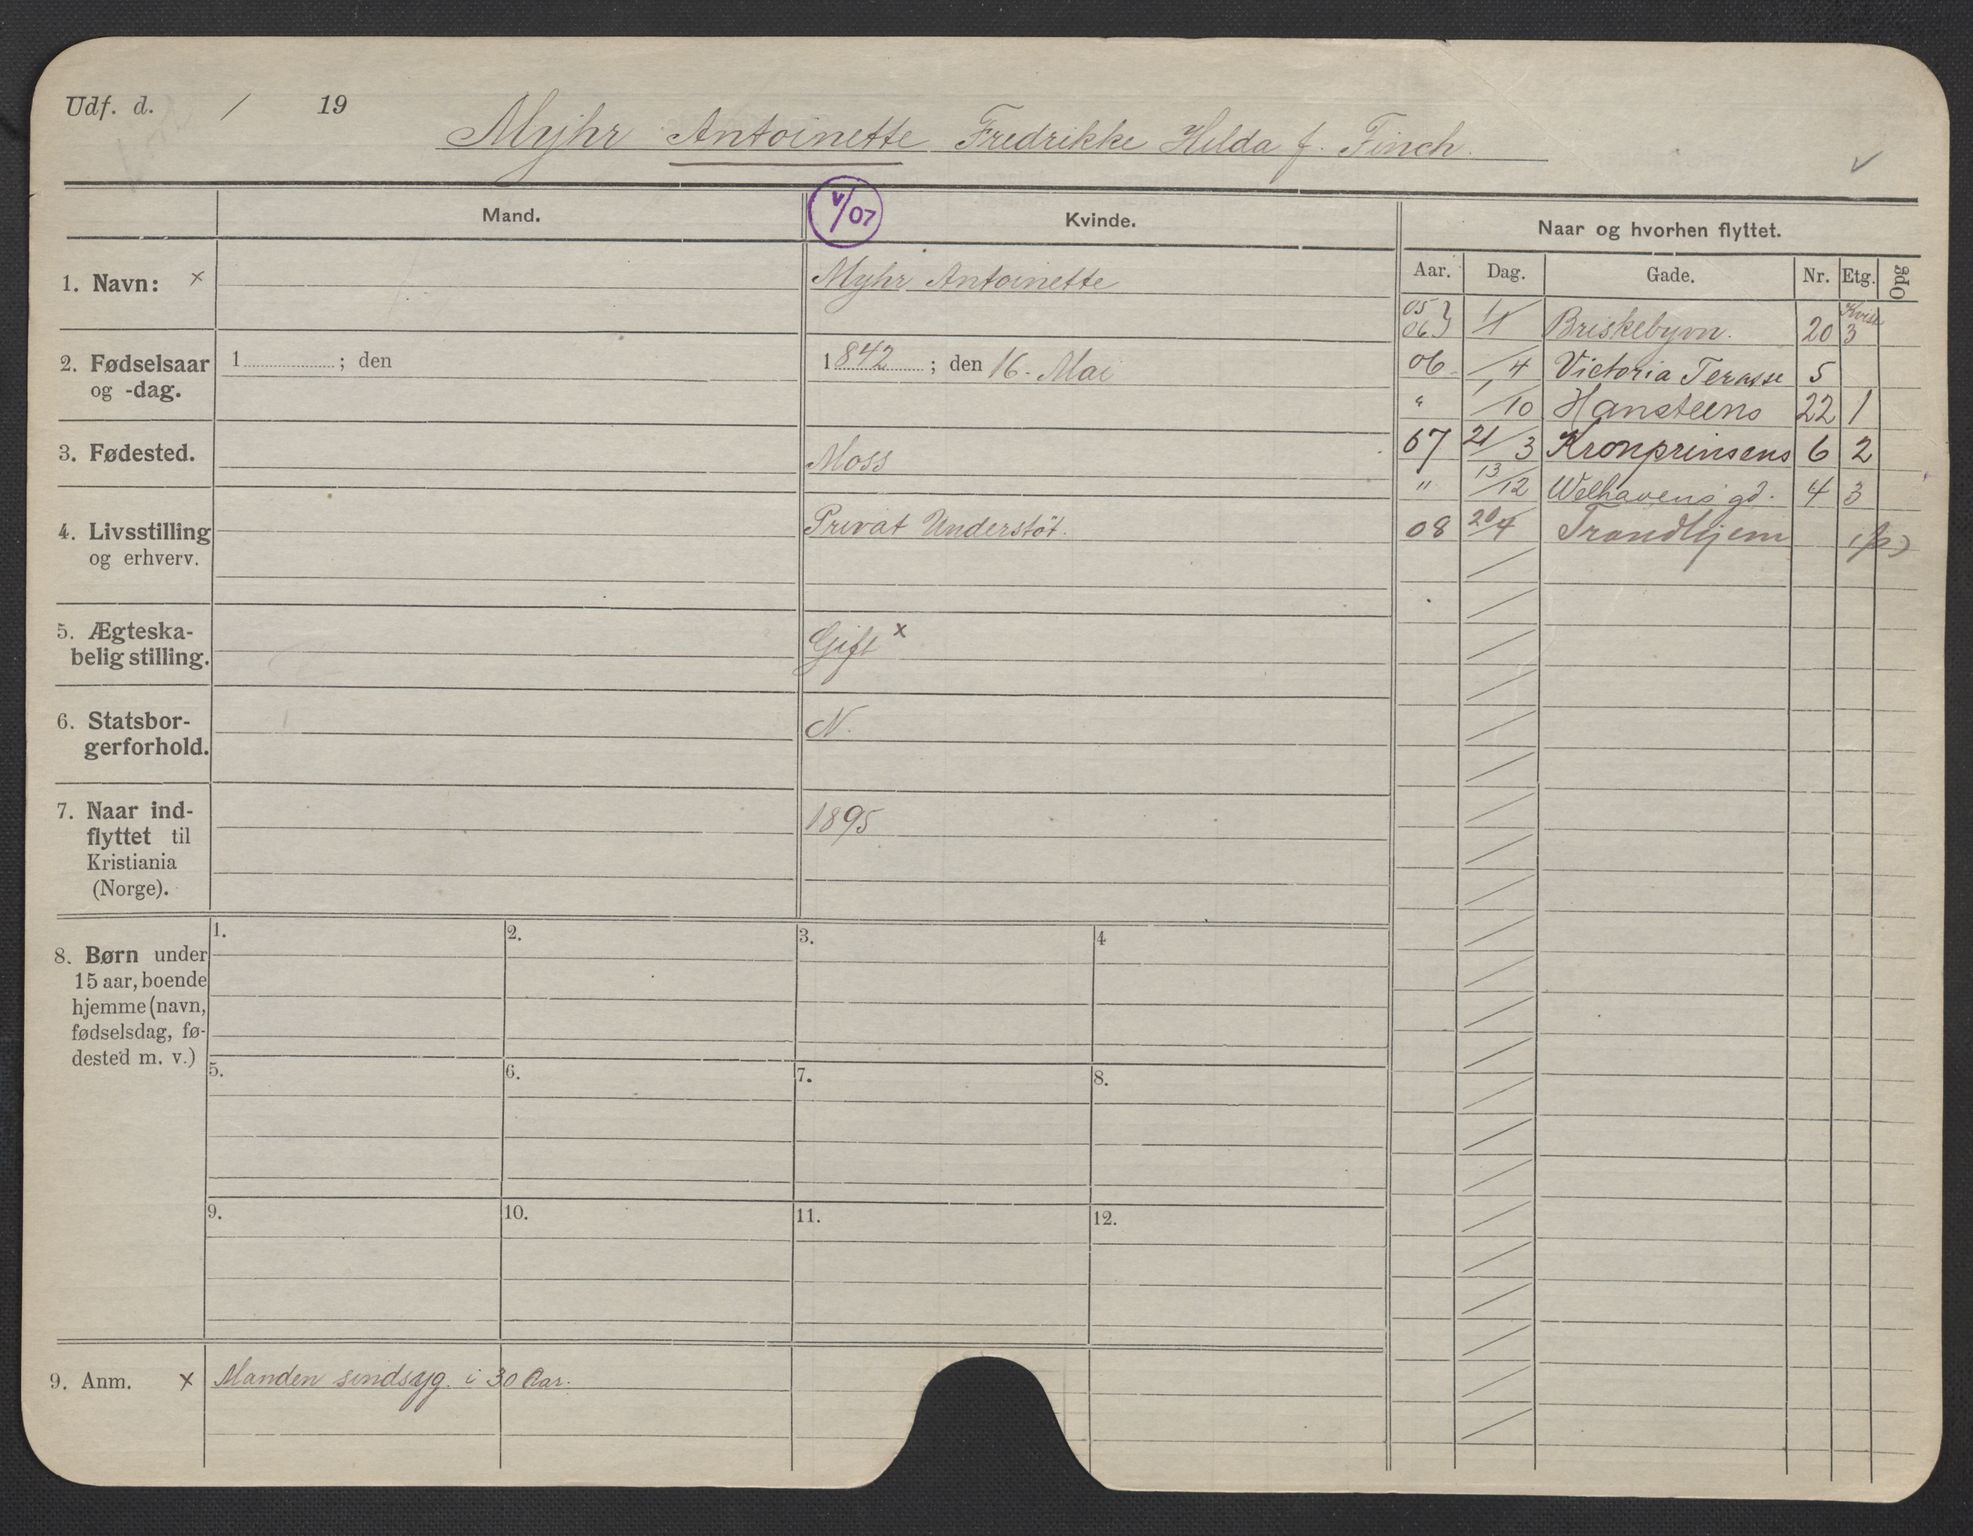 Udf. d. / 19
Myhr Antoinette Fredrikke Hilda f. Finch.
v
Mand.
V/07
Kvinde.
Naar og hvorhen flyttet.
Aar. Dag. Gade. Nr. Etg. Opg
1. Navn: x
Myhr Antoinette
2. Fødselsaar og -dag.
1 ; den
1842 ; den 16. Mai
3. Fødested.
Moss
4. Livsstilling og erhverv.
Privat Understöt.
5. Ægteska-
belig stilling.
Gift x
6. Statsbor-
gerforhold.
N.
7. Naar ind-
flyttet til
Kristiania
(Norge).
1895
05 06 } 1/1 Briskebyvn. 20 3 Kvist
06 /4 Victoria Terasse 5
" 1/10 Hansteens 22 1
07 21/3 Kronprinsens 6 2
" 13/12 Welhavens gd. 4 3
08 20/4 Trondhjem
8. Børn under
15 aar, boende
hjemme (navn,
fødselsdag, fø-
dested m. v.)
1. 2. 3. 4
5. 6. 7. 8.
9. 10. 11. 12.
9. Anm. x Manden sindsyg. i 30 Aar.